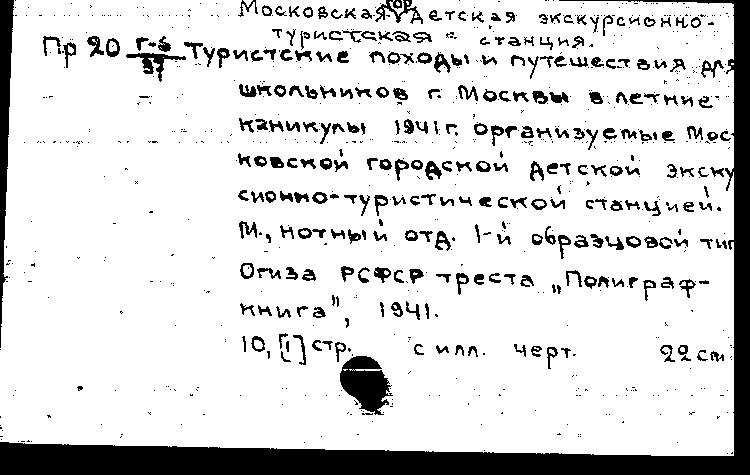 Московская гор. детская экскурсионно-
туристская станция.
Пр 20 г-6/37 Туристские походы и путешествия для
школьников г. Москвы в летние
каникулы 1941 г. организуемые Мос
ковской городской детской экску
сионно-туристической станцией.
М., нотный отд. 1-й образцовой тип
Огиза РСФСР треста „Полиграф-
книга", 1941.
10, [1] стр. с илл. черт. 22 cm